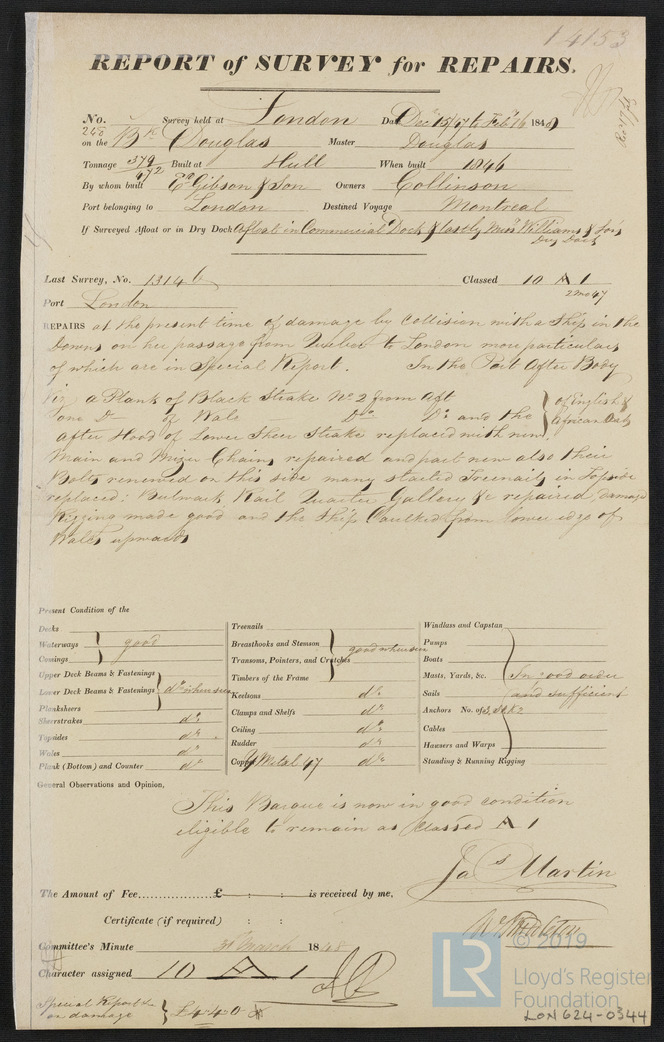 14153
REPORT of SURVEY for REPAIRS.
No. 240 Survey held at London Date Decr 15/47 to Feby 16 1848
on the Bk Douglas Master Douglas
Tonnage 379 / 472 Built at Hull When built 1846
By whom built Ed Gibson & Son Owners Collinson
Port belonging to London Destined Voyage Montreal
If Surveyed Afloat or in Dry Dock Afloat in Commercial Dock & lastly Messrs Williams & Son's
Dry Dock
Last Survey, No. 13146 Classed 10 A 1
Port London 2mo47
REPAIRS at the present time of damage by Collision with a Ship in the
Downs on her passage from Quebec to London more particulars
of which are in Special Report. In the Port After Body
Viz a Plank of Black Strake No 2 from Aft } of English &
one Do of Wale Do Do and the } African Oak
after Hood of Lower Sheer Strake replaced with new.
Main and Mizen Chains repaired and part new also their
Bolts renewed on this side many started Treenails in Topside
replaced: Bulwark Rail Quarter Gallery &c repaired, damage
Rigging made good and the Ship Caulked from lower edge of
Wales upwards
Present Condition of the
Decks
Waterways } good
Comings
Upper Deck Beams & Fastenings
Lower Deck Beams & Fastenings } do when seen
Planksheers
Sheerstrakes do
Topsides do
Wales do
Plank (Bottom) and Counter do
Treenails
Breasthooks and Stemson
Transoms, Pointers, and Crutches } good when seen
Timbers of the Frame
Keelsons do
Clamps and Shelfs do
Ceiling do
Rudder do
Copper Y Metal 47 do
Windlass and Capstan
Pumps
Boats
Masts, Yards, &c. } In good order
Sails and sufficient
Anchors No. of 3, 1 & 2
Cables
Hawsers and Warps
Standing & Running Rigging
General Observations and Opinion,
This Barque is now in good condition
eligible to remain as Classed A 1
Jas Martin
The Amount of Fee £ : : is received by me,
Certificate (if required) : :
Committee's Minute 31 March 1848
Character assigned 10 A 1
Special Report &
on damage } £4.4.0
© 2019
LR
Lloyd's Register
Foundation
LON624-0344